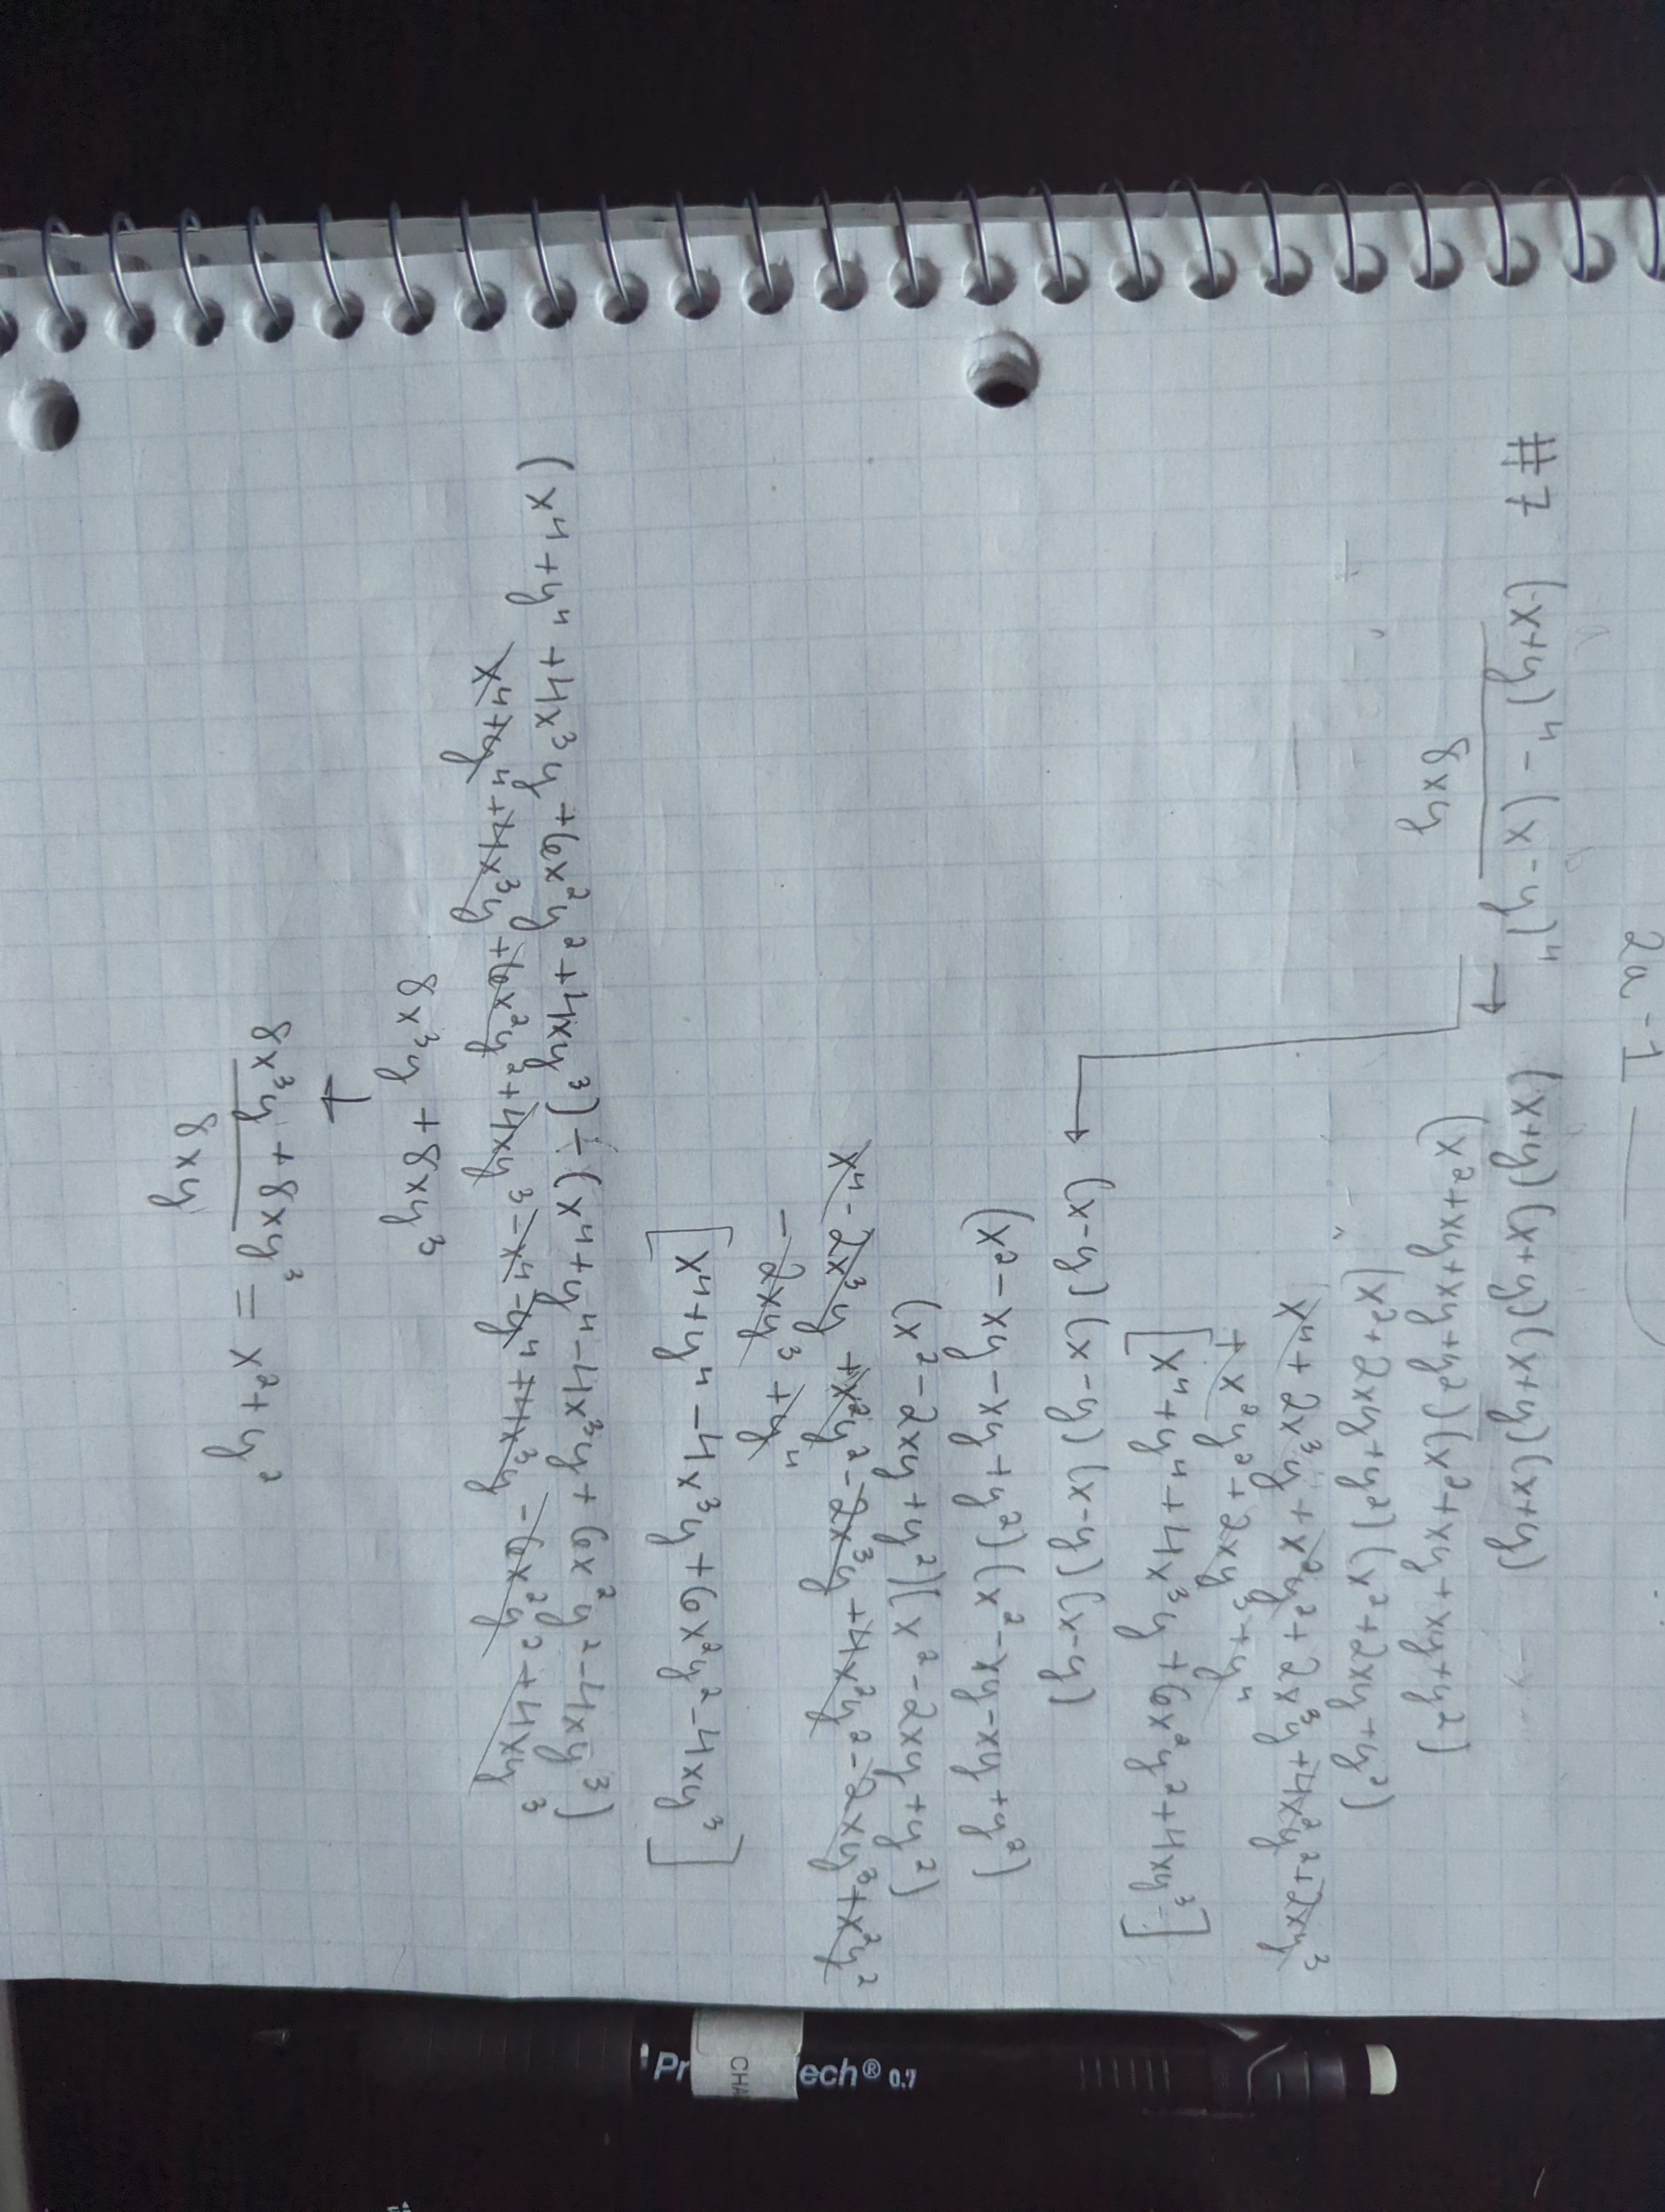 2a - 1
#7 (x+y)⁴ - (x-y)⁴ ← (x+y)(x+y)(x+y)(x+y)
8xy
(x²+xy+xy+y²)(x²+xy+xy+y²)
(x²+2xy+y²)(x²+2xy+y²)
x⁴ + 2x³y + x²y² + 2x³y + 4x²y² + 2xy³
+ x²y² + 2xy³ + y⁴
[x⁴ + y⁴ + 4x³y + 6x²y² + 4xy³]
(x-y)(x-y)(x-y)(x-y)
(x² - xy - xy + y²)(x² - xy - xy + y²)
(x² - 2xy + y²)(x² - 2xy + y²)
x⁴ - 2x³y + x²y² - 2x³y + 4x²y² - 2xy³ + x²y²
- 2xy³ + y⁴
[x⁴ + y⁴ - 4x³y + 6x²y² - 4xy³]
(x⁴ + y⁴ + 4x³y + 6x²y² + 4xy³) - (x⁴ + y⁴ - 4x³y + 6x²y² - 4xy³)
x⁴ + y⁴ + 4x³y + 6x²y² + 4xy³ - x⁴ - y⁴ + 4x³y - 6x²y² + 4xy³
8x³y + 8xy³
8x³y + 8xy³ = x² + y²
8xy
Pr
ech® 0.7
CHA